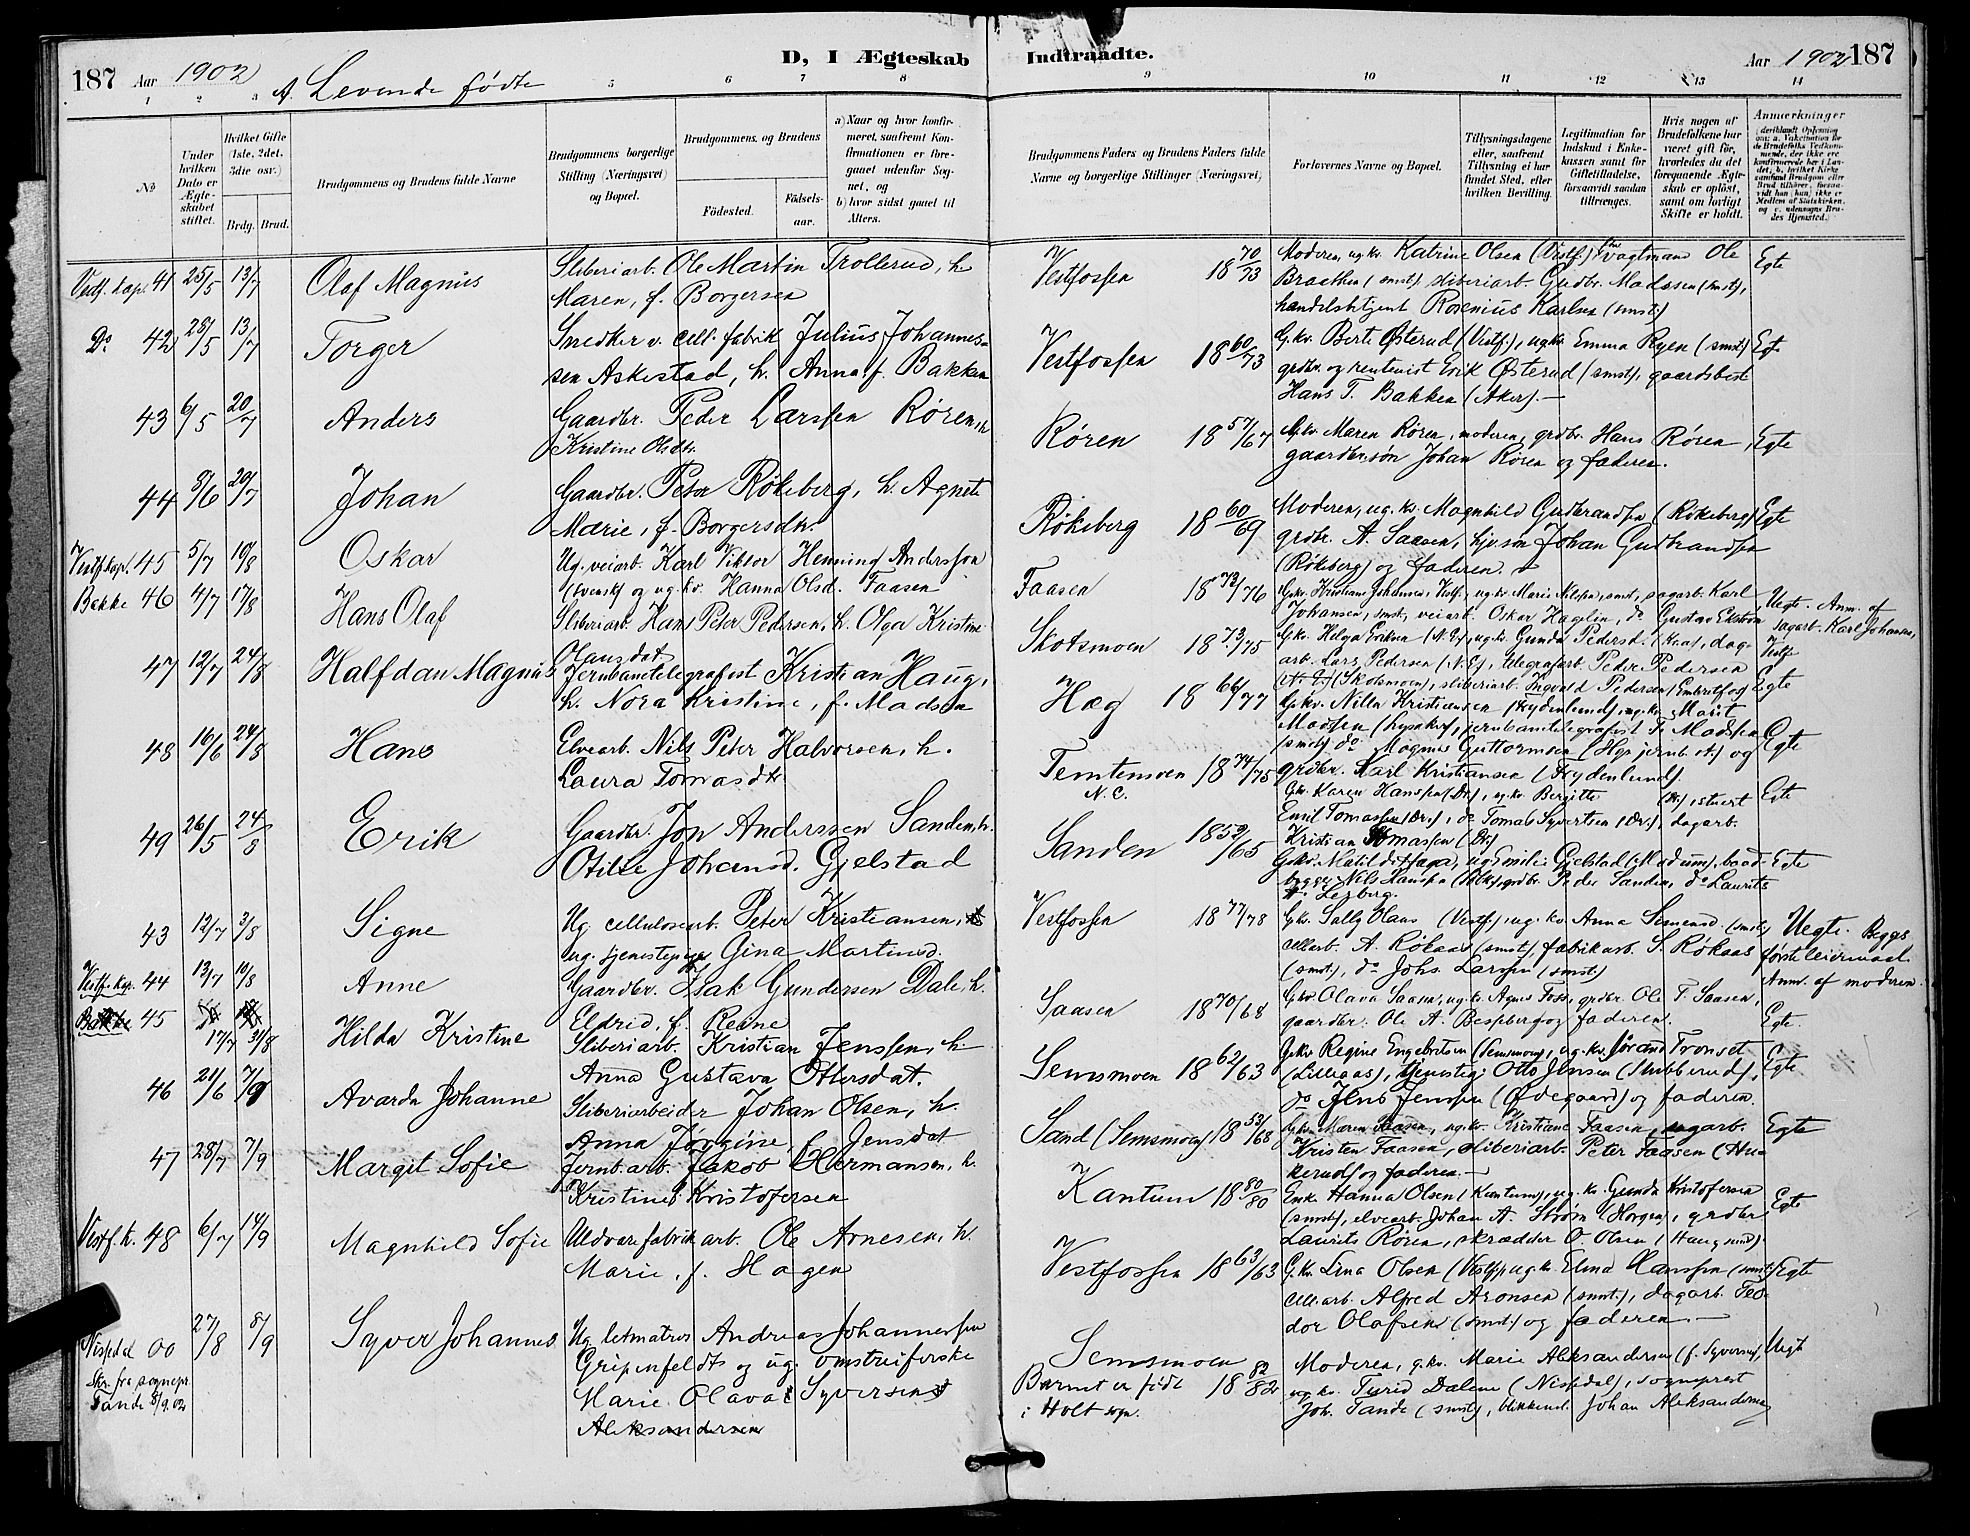 187 Aar 1902 A. Levende fødte
D, I Ægteskab Indtraadte.
Aar 1902 187
1 2 3 5 6 7 8 9 10 11 12 13 14
No
Under hvilken Dato er Ægteskabet stiftet.
Hvilket Gifte (1ste, 2det, 3die osv.)
Brdg. Brud.
Brudgommens og Brudens fulde Navne
Brudgommens borgerlige Stilling (Næringsvei) og Bopæl.
Brudgommens og Brudens
Födested. Födselsaar.
a) Naar og hvor konfirmeret, saafremt Konfirmationen er foregaaet udenfor Sognet, og
b) hvor sidst gaaet til Alters.
Brudgommens Faders og Brudens Faders fulde Navne og borgerlige Stillinger (Næringsvei)
Forlovernes Navne og Bopæl.
Tillysningsdagene eller, saafremt Tillysning ei har fundet Sted, efter hvilken Bevilling.
Legitimation for Indskud i Enkekassen samt for Giftetilladelse, forsaavidt saadan tiltrænges.
Hvis nogen af Brudefolkene har været gift för, hvorledes da det foregaaende Ægteskab er oplöst, samt om lovligt Skifte er holdt.
Anmerkninger
Vestf. kap. 41 25/5 13/7 Olaf Magnus Sliberiarb. Ole Martin Trollerud, h. Maren, f. Borgersen
Vestfossen 18 70/73 Moderen, ug.kv. Katrine Olsen (Vestf.) vagtmand Ole
Braathen (smst), sliberiarb. Gudbr. Madssen (smst),
handelsbetjent Rosenius Karlsen (smst) Egte
Do 42 28/5 13/7 Torger Snedker v. cell. fabrik Julius Johannessen Askestad, h. Anna f. Bakken
Vestfossen 18 60/73 G.kv. Berte Østerud (Vestf.), ug.kv. Emma Ryen (smst)
grdbr. og rentenist Erik Østerud (smst), gaardbest.
Hans T. Bakken (Aker). Egte
43 6/5 20/7 Anders Gaardbr. Peder Larssen Røren, h. Kristine Olsdtr.
Røren 18 57/67 G.kv. Maren Røren, moderen, grdbr. Hans Røren,
gaardbr.søn Johan Røren og faderen. Egte
44 8/6 20/7 Johan Gaardbr. Peter Røkeberg, h. Agnete Marie, f. Borgersdtr.
Røkeberg 18 60/69 Moderen, ug.kv. Magnhild Gudbrandsen (Røkeberg)
grdbr. A. Saasen, hjv. søn Johan Gudbrandsen
(Røkeberg) og faderen. Egte
Vestf. kap. 45 5/7 10/8 Oskar Ug. veiarb. Karl Viktor Henning Anderssen (svensk) og ug.kv. Hanna Olsd. Faasen
Faasen 18 72/76 G.kv. Kristiane Johansen, Vestf., ug.kv. Marie Nilsen, smst, sagarb. Karl
Johansen, smst, veiarb. Oskar Haglin, do Gustav Ekstrøm Uegte. Anm. af sagarb. Karl Johansen, Vestf.
Bakke 46 4/7 17/8 Hans Olaf Sliberiarb. Hans Peter Pedersen, h. Olga Kristine Olausdat.
Skotsmoen 18 73/75 G.kv. Helga Eriksen (N.E), ug.kv. Gunda Pedersd. , dagarb. Lars Pedersen (N.E), telegrafarb. Peder Pedersen
(Skotsmoen), sliberiarb. Ingvald Pedersen (Embretfos) Egte
47 12/7 24/8 Halfdan Magnus Jernbanetelegrafist Kristian Haug, h. Nora Kristine, f. Madsen
Hæg 18 66/77 G.kv. Nilla Kristiansen (Frydenlund), ug.kv. Marit
Madsen (Lysaker), jernbanetelegrafist Fr. Madsen
(smst) do Magnus Guttormsen og
grdbr. Karl Kristiansen (Frydenlund). Egte
48 16/6 24/8 Hans Elvearb. Nils Peter Halvorsen, h. Laura Tomasdtr.
Temtemoen N.E. 18 74/75 G.kv. Karen Hanssen (Dr.), ug.kv. Bergitte (Dr.), stuert
Emil Tomassen (Dr.), do Tomas Syvertsen (Dr.), dagarb.
Kristian Tomassen (Dr.) Egte
49 26/5 24/8 Erik Gaardbr. Jon Anderssen Sanden, h. Otilie Johansd. Gjelstad
Sanden 18 52/65 G.kv. Matilde Haga, ug. Emilie Gjelstad (Modum), baadbygger Nils Hanssen, grdbr. Peder Sanden, do Laurits
Lerberg. Egte
43 12/7 3/8 Signe Ug. cellulosearb. Peter Kristiansen, ug. tjenestepige Gina Martinsd.
Vestfossen 18 77/78 G.kv. Sally Olaus (Vestf.), ug.kv. Anna Simensd (smst)
cell.arb. A. Røkaas (smst), fabrikarb. S. Røkaas
(smst), do Johs. Larssen (smst) Uegte. Begges første leiermaal Anm. af moderen.
Vestf. kap. 44 13/7 10/8 Anne Gaardbr. Isak Gundersen Dale, h. Eldrid, f. Reine
Saasen 18 70/68 G.kv. Olava Saasen, ug.kv. Agnes Foss, grdbr. Ole T. Saasen,
gaardbr. Ole A. Besseberg og faderen. Egte.
Bakke 45 17/7 31/8 Hilda Kristine Sliberiarb. Kristian Jenssen, h. Anna Gustava Ottersdat.
Semsmoen 18 62/63 G.kv. Regine Engebretsen (Semsmoen), ug.kv. Jørand Tronset
(Lilleaas), tjenesteg. Otto Jensen (Stubberud),
do Jens Jenssen (Ødegaard) og faderen. Egte
46 21/6 7/9 Avarda Johanne Sliberiarbeider Johan Olsen, h. Anna Jørgine, f. Jensdat
Sand (Semsmoen) 18 53/68 G.kv. Maren Faasen, ug.kv. Kristiane Faasen, sagarb.
Kristen Faasen, sliberiarb. Peter Faasen (Hukerud) og faderen. Egte
47 28/7 7/9 Margit Sofie Jernb.arb. Jakob Hermansen, h. Kristine Kristofersen
Kantum 18 80/80 Enke Hanna Olsen (Kantum), ug.kv. Gunda Kristofersen
(smst), elvearb. Johan A. Strøm (Horgen), grdbr.
Laurits Røren, skrædder O. Olsen (Haugsund). Egte
Vestf. k. 48 6/7 14/9 Magnhild Sofie Uldvarefabrikarb. Ole Arnesen, h. Marie, f. Hagen
Vestfossen 18 63/63 G.kv. Lina Olsen (Vestf.), ug.kv. Elma Hanssen (smst)
cell.arb. Alfred Aronsen (smst), dagarb. Teodor Olafsen (smst) og faderen. Egte
Nissedal 00 27/8 8/9 Syver Johannes Ug. letmatros Andreas Johannessen Gripenfeldt og ug. Marie Olava Syversen Aleksandersen
Skr. fra sognepr. Tande 8/9.02
Semsmoen Barnet er født i Holt sogn. 18 82/82 Moderen, g.kv. Marie Aleksandersen (f. Syversen),
ug.kv. Turid Dalene (Nissedal), sogneprest
Joh. Tande (smst), blikkensl. Johan Aleksandersen Uegte